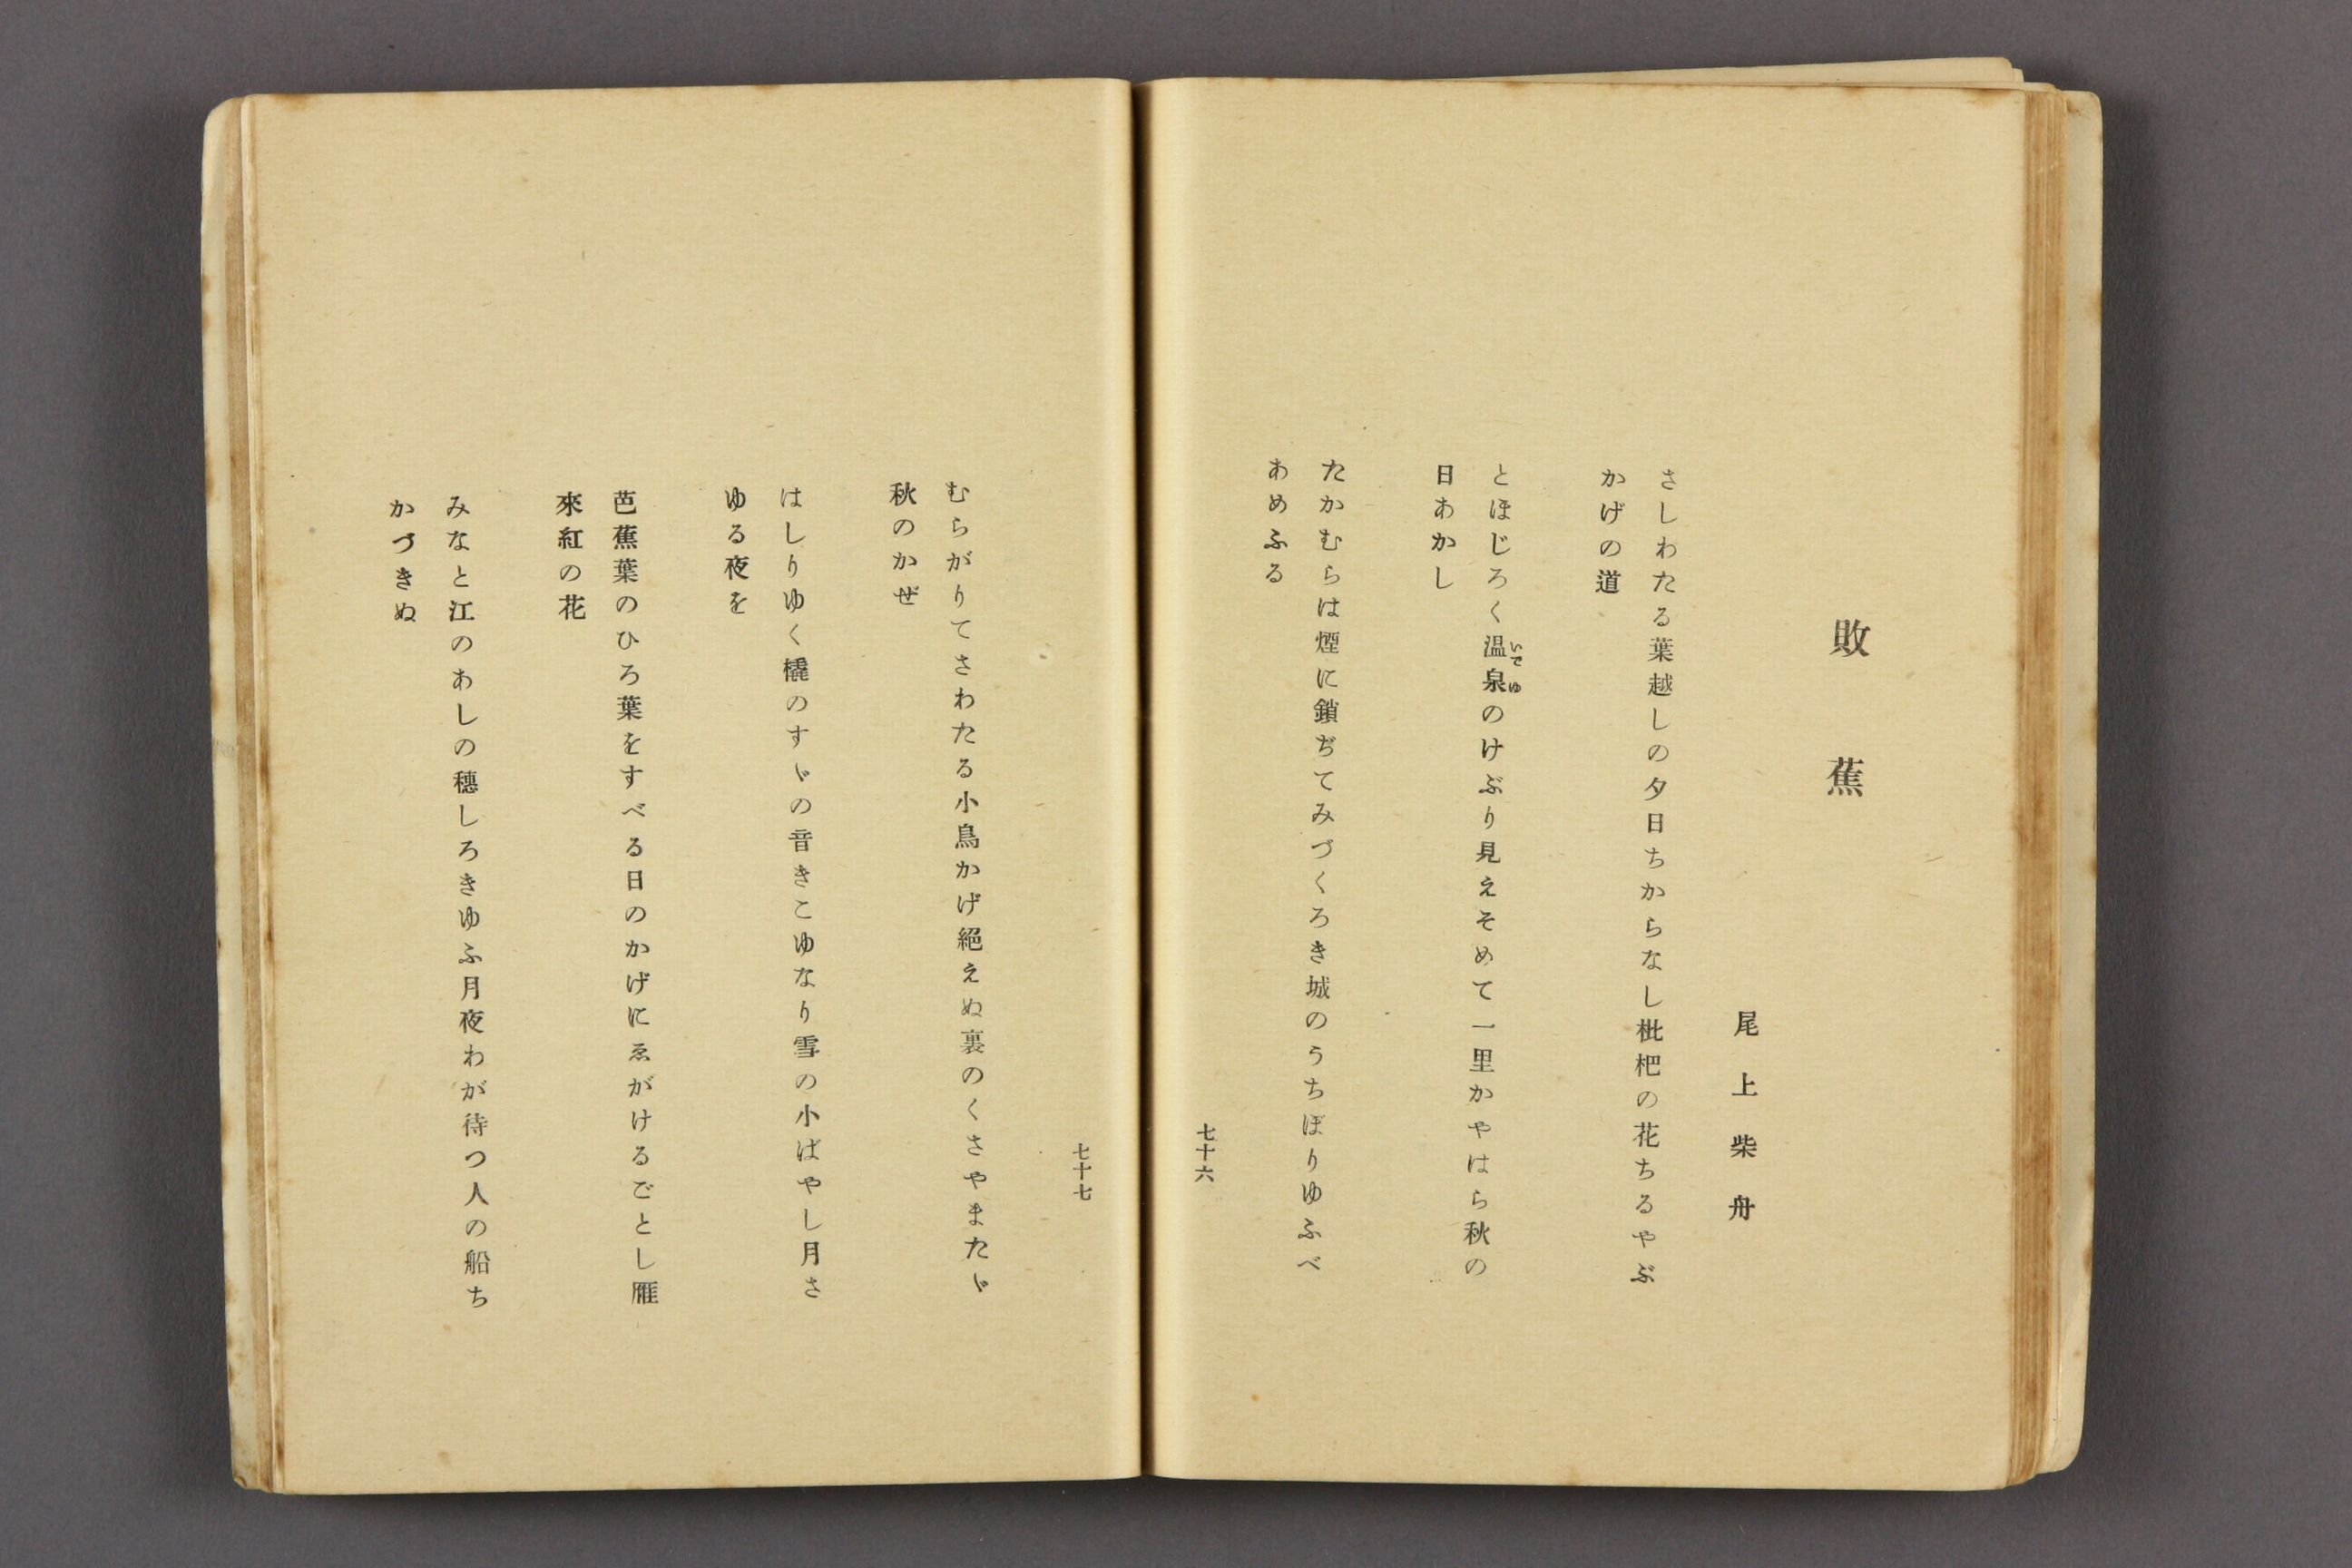 敗蕉
尾上柴舟
さしわたる葉越しの夕日ちからなし枇杷の花ちるやぶ
かげの道
とほじろく温泉のけぶり見えそめて一里かやはら秋の
いでゆ
日あかし
たかむらは煙に鎖ぢてみづくろき城のうちぼりゆふべ
あめふる
七十六
七十七
むらがりてさわたる小鳥かげ絕えぬ裏のくさやまたゞ
秋のかぜ
はしりゆく橇のすゞの音きこゆなり雪の小ばやし月さ
ゆる夜を
芭蕉葉のひろ葉をすべる日のかげにゑがけるごとし雁
來紅の花
みなと江のあしの穗しろきゆふ月夜わが待つ人の船ち
かづきぬ